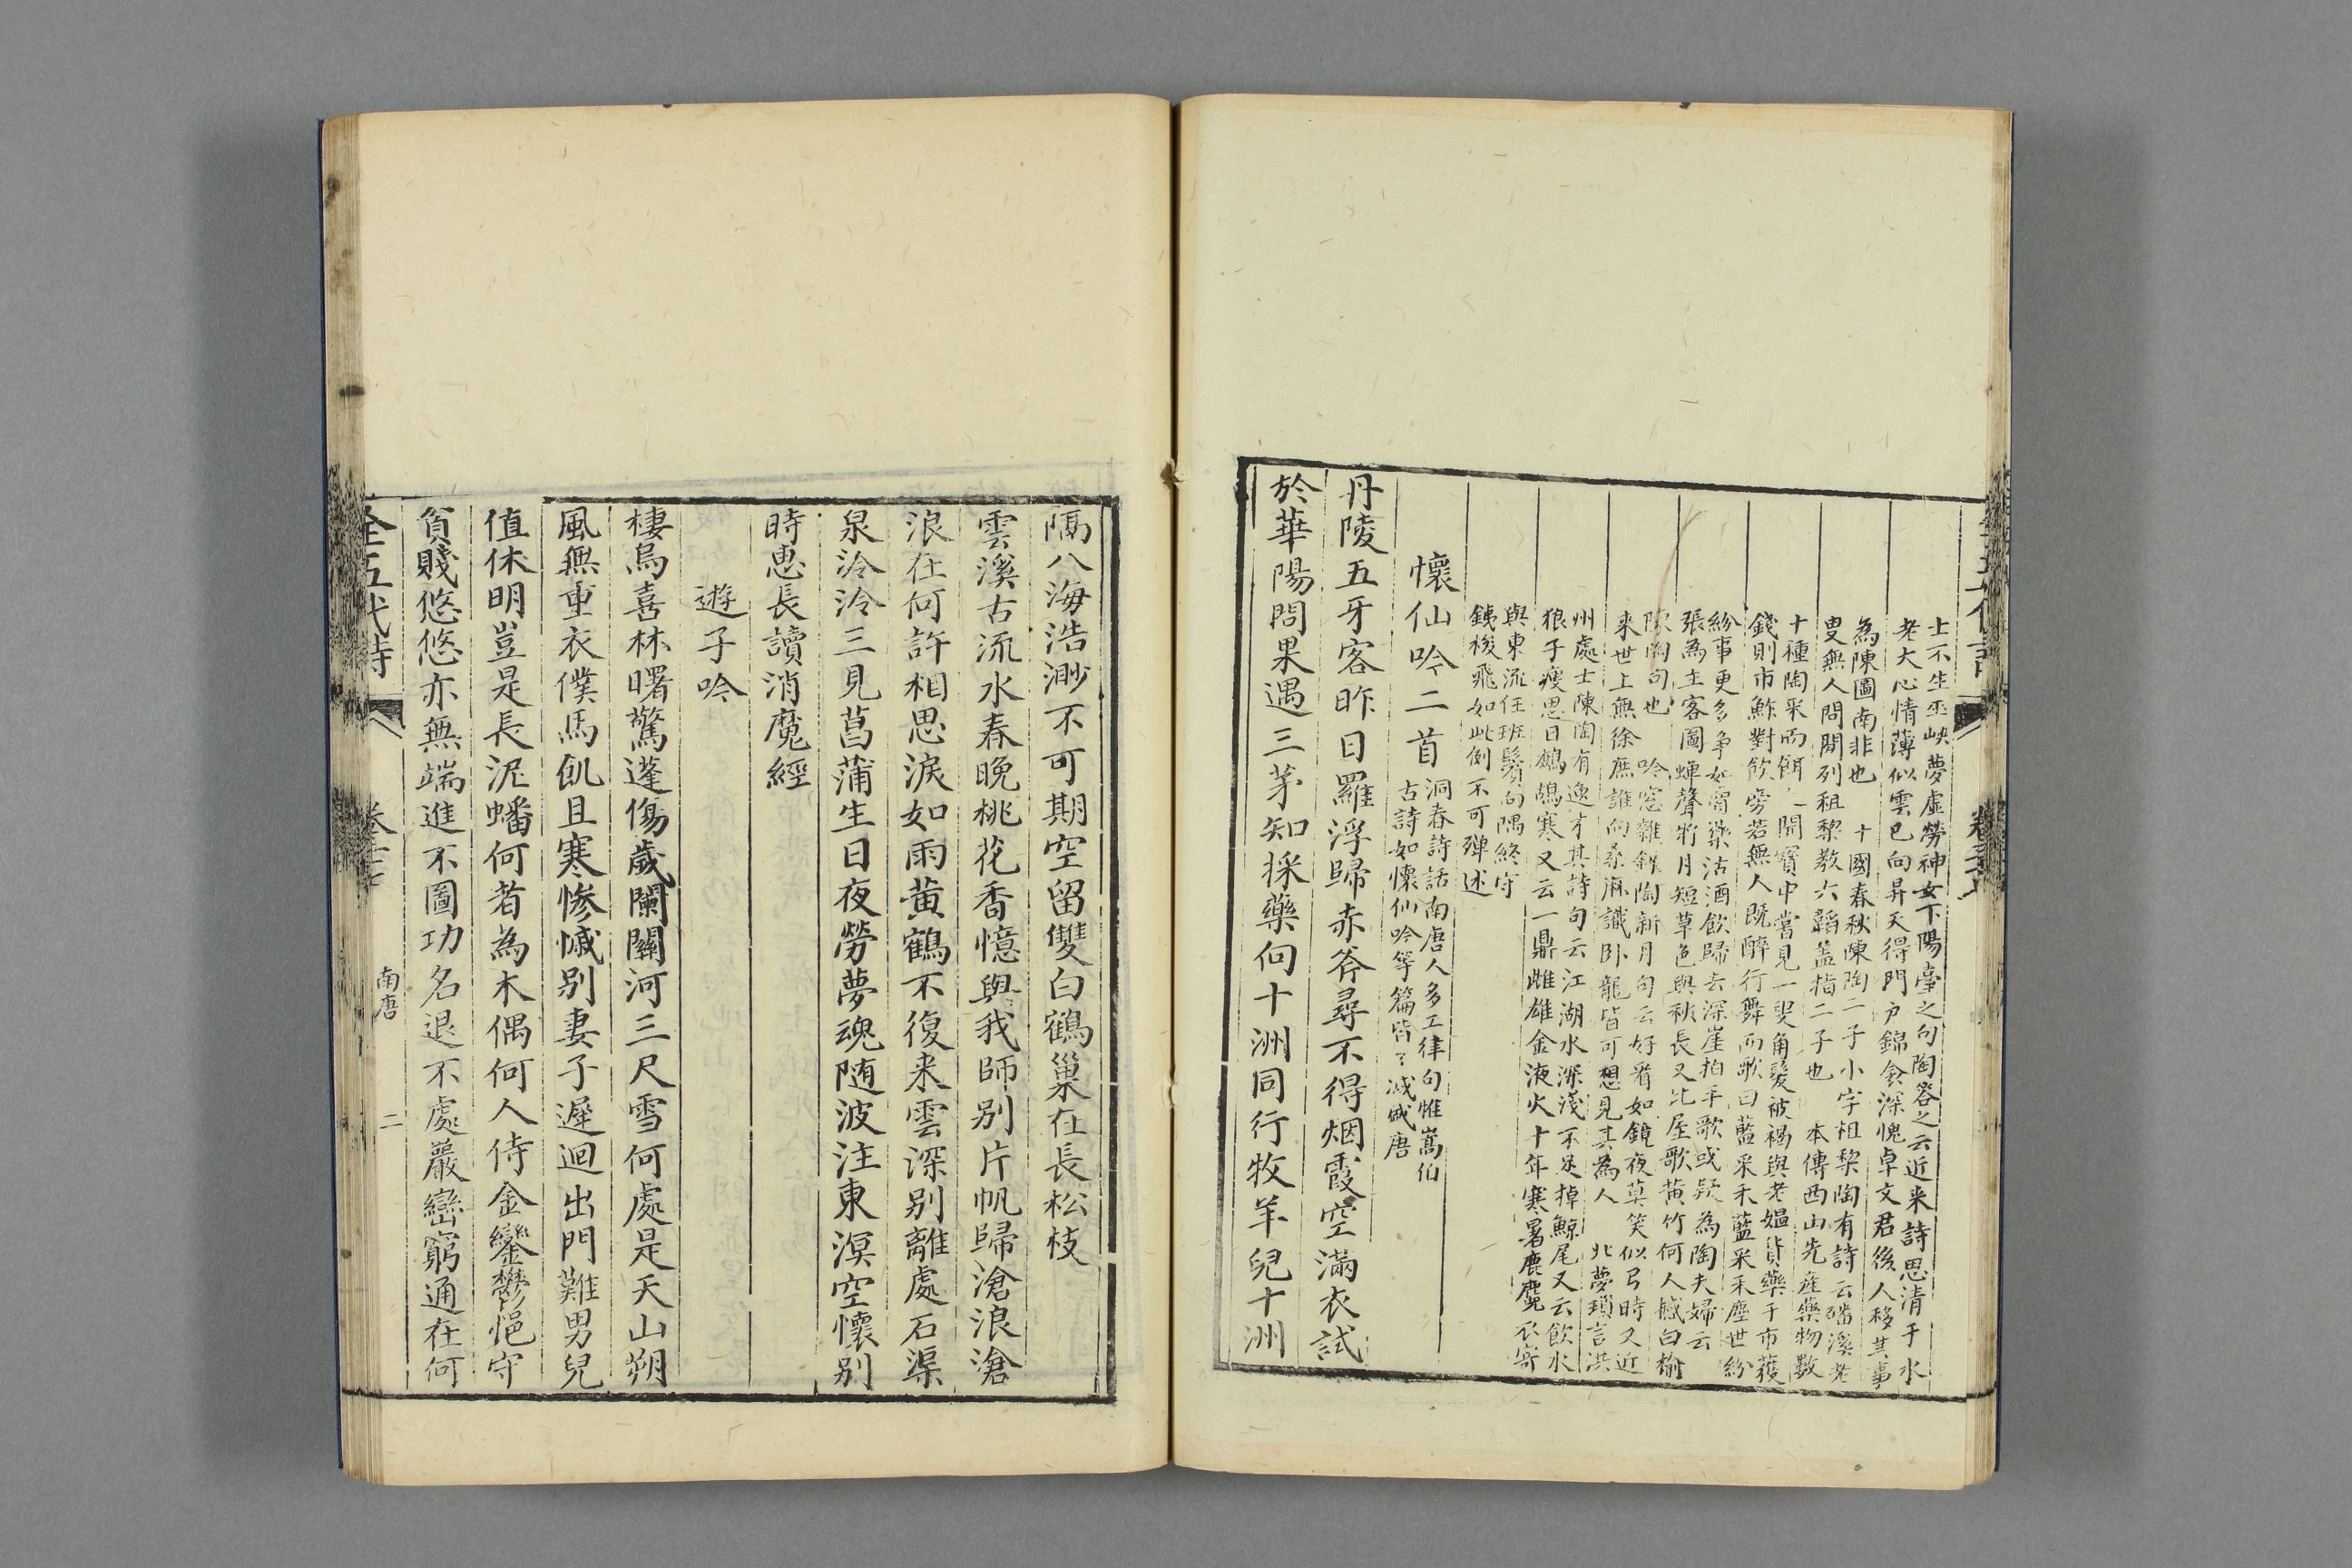 士不生巫峽夢虛勞神女下陽臺之句陶答之云近来詩思清于水
老大心情薄似雲已向昇天得門户錦衾深愧卓文君後人移其事
為陳圖南非也 十國春秋陳陶二子小字柤棃陶有詩云磻溪老
叟無人問閒列柤黎教六韜盖指二子也 本傳西山先産藥物數
十種陶采而餌 開寶中嘗見一叟角髮被褐與老媪貨藥于市獲
錢則市鮓對飲旁若無人既醉行舞而歌曰藍采禾藍采禾塵世紛
紛事更多争如賣藥沽酒飲歸去深崖拍手歌或疑為陶夫婦云
張為主客圖蟬聲将月短草色與秋長又比屋歌黄竹何人撼白榆
陳陶句也 吟窻雜錄陶新月句云好看如鏡夜莫笑似弓時又近
来世上無徐庶誰向桑麻識卧龍皆可想見其為人 北夢瑣言洪
州處士陳陶有逸才其詩句云江湖水深淺不足掉鯨尾又云飲水
狼子瘦思日鷓鴣寒又云一鼎雌雄金液火十年寒暑鹿麑衣寄
與東流任班鬢向隅終守
銕梭飛如此例不可殫述
懷仙吟二首
洞春詩話南唐人多工律句惟嵩伯
古詩如懷仙吟等篇皆〻減唐
丹陵五牙客昨日羅浮歸赤斧尋不得烟霞空滿衣試
於華陽問果遇三茅知採藥向十洲同行牧羊兒十洲
隔八海浩渺不可期空留雙白鶴巢在長松枝
雲溪古流水春晩桃花香憶與我師别片帆歸滄浪滄
浪在何許相思淚如雨黄鶴不復来雲深别離處石渠
泉泠泠三見菖蒲生日夜勞夢魂随波注東溟空懷别
時惠長讀消魔經
遊子吟
棲烏喜林曙驚蓬傷歲闌關河三尺雪何處是天山朔
風無重衣僕馬飢且寒惨慽别妻子遲迴出門難男兒
值休明豈是長泥蟠何者為木偶何人侍金鑾鬱悒守
貧賤悠悠亦無端進不圖功名退不處巖巒窮通在何
全五代詩
南唐
二